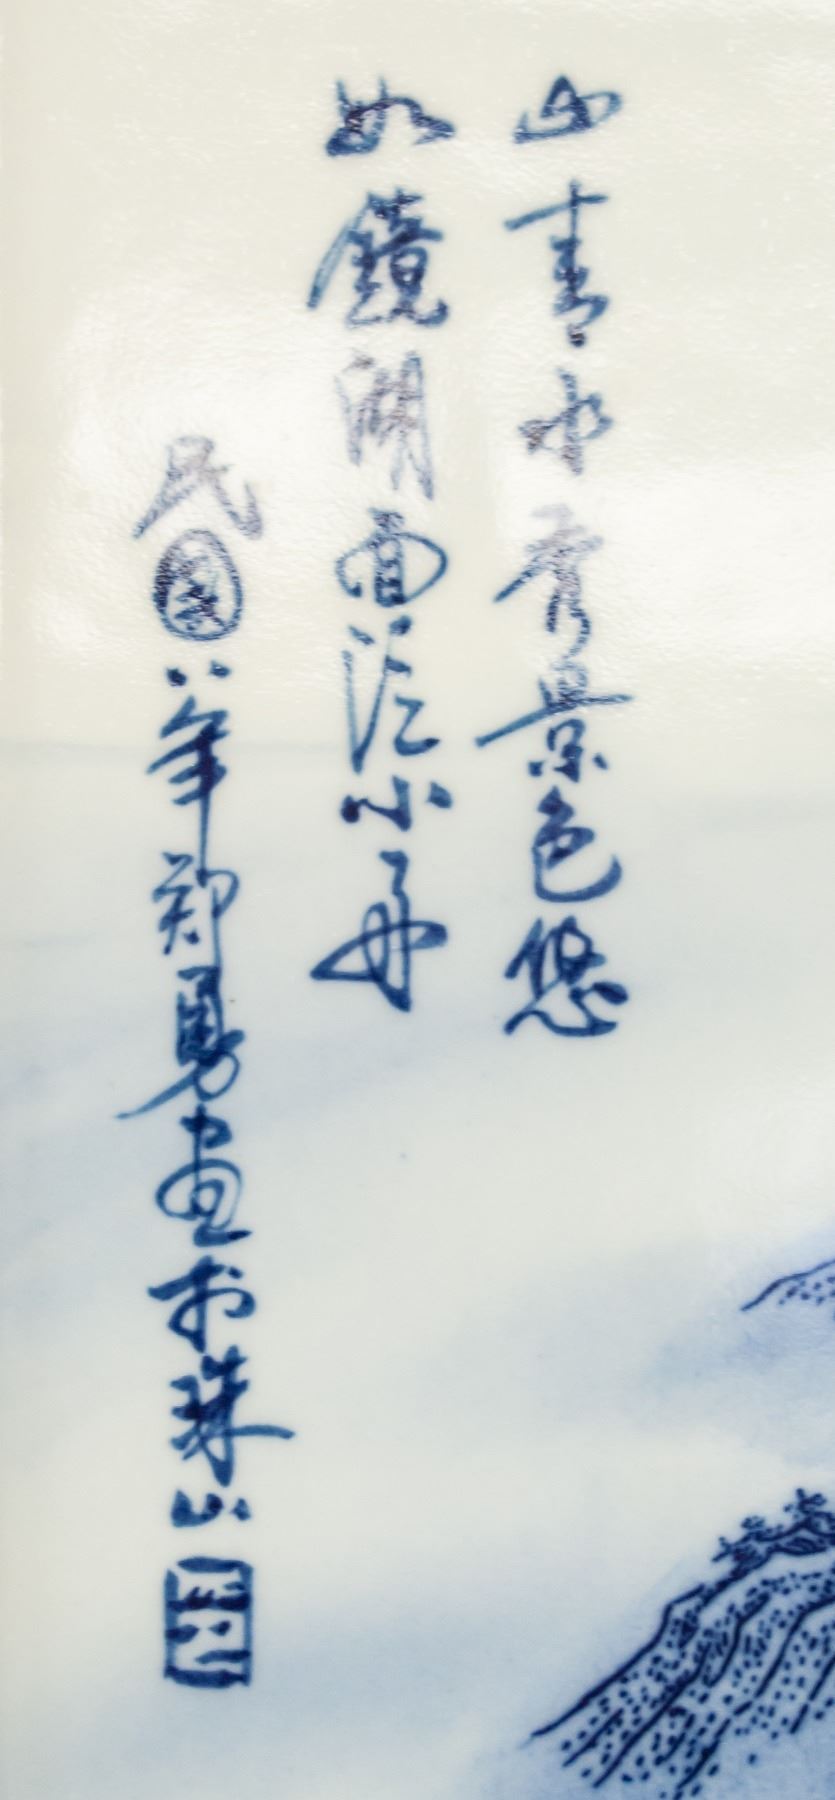 山青水秀景色悠
如镜湖面泛小舟
民國八年郑勇画於珠山